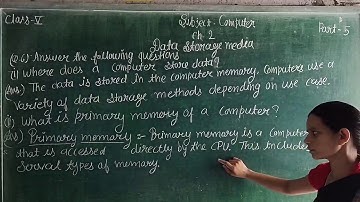 Class-V
Subject-Computer
ch 2
Part-5
Data storage media
(Q.6) Answer the following questions
(i) Where does a computer store data?
(Ans) The data is stored in the computer memory. Computers use a
variety of data storage methods depending on use case.
(ii) What is primary memory of a computer?
(Ans) Primary memory :- Primary memory is a computer
that is accessed directly by the CPU. This includes
Serval types of memory.